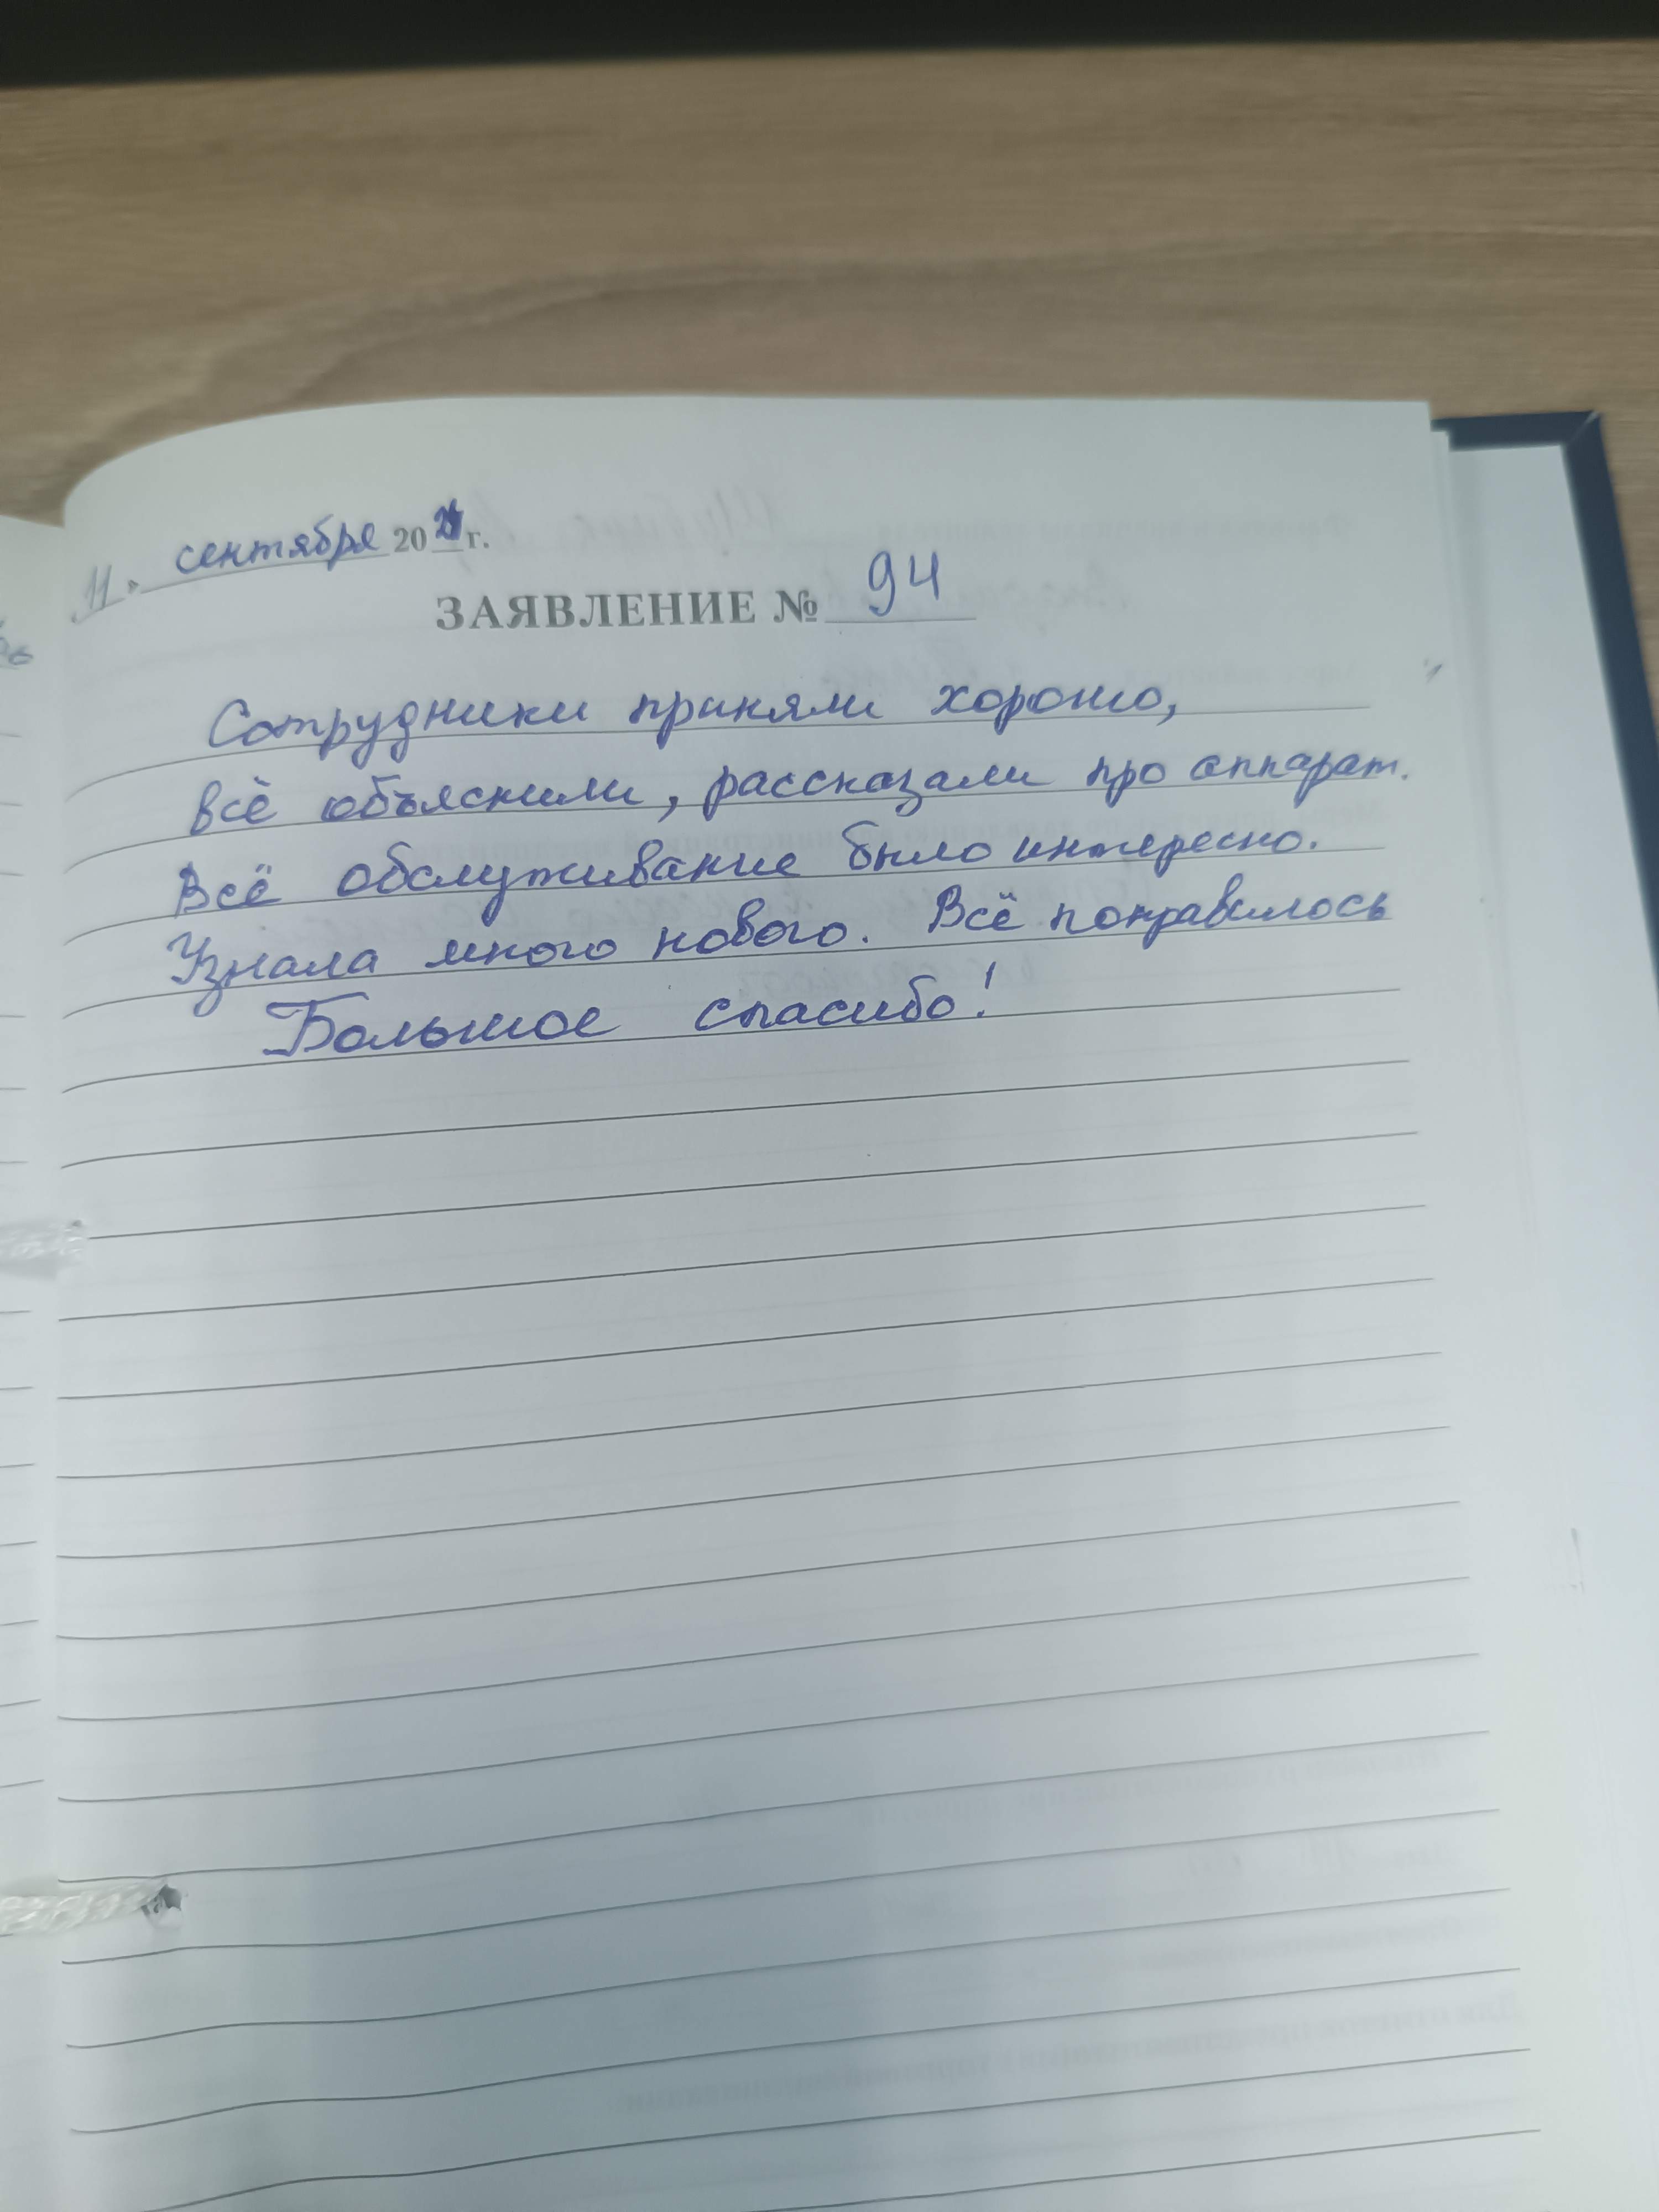 11 » сентября 20 г.
ЗАЯВЛЕНИЕ № 94
Сотрудники приняли хорошо,
всё объяснили, рассказали про аппарат.
Всё обслуживание было интересно.
Узнала много нового. Всё понравилось
Большое спасибо!